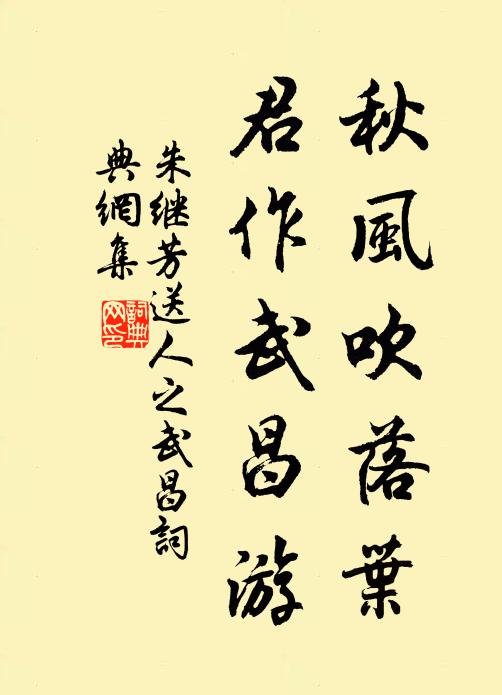 秋風吹落葉
君作武昌游
朱继芳送人之武昌詞
典網集
詞典
网印